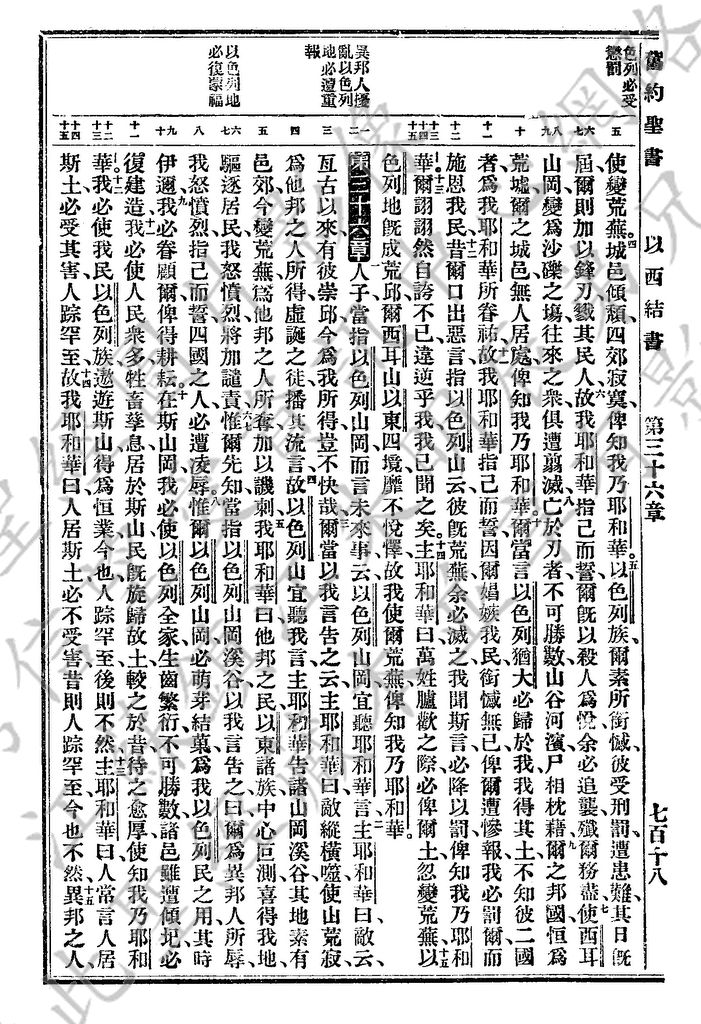 舊約聖書 以西結書 第三十六章 七百十八
色列必受
懲罰
異邦人擾
亂以色列
地必遭重
報
以色列地
必復蒙福
五 使變荒蕪城邑傾頹四郊寂寞俾知我乃耶和華以色列族爾素所銜憾彼受刑罰遭患難其日旣
六七 屆爾則加以鋒刃戮其民人故我耶和華指己而誓爾旣以殺人爲悅余必追襲殲爾務盡使西耳
八九 山岡變爲沙礫之塲往來之衆俱遭翦滅亡於刃者不可勝數山谷河濱尸相枕藉爾之邦國恒爲
十 荒墟爾之城邑無人居處俾知我乃耶和華爾當言以色列猶大必歸於我我得其土不知彼二國
十一 者爲我耶和華所眷祐故我耶和華指己而誓因爾娼嫉我民銜憾無已俾爾遭慘報我必罰爾而
十二 施恩我民昔爾口出惡言指以色列山云彼旣荒蕪余必滅之我聞斯言必降以罰俾知我乃耶和
十三十四十五 華爾詡詡然自誇不已違逆乎我我已聞之矣主耶和華曰萬姓臚歡之際必俾爾土忽變荒蕪以
色列地旣成荒邱爾西耳山以東四境靡不悅懌故我使爾荒蕪俾知我乃耶和華
一二 第三十六章 人子當指以色列山岡而言未來事云以色列山岡宜聽耶和華言主耶和華曰敵云
三 亙古以來有彼崇邱今爲我所得豈不快哉爾當以我言告之云主耶和華曰敵縱橫噬使山荒寂
四 爲他邦之人所得虛誕之徒播其流言故以色列山宜聽我言主耶和華告諸山岡溪谷其地素有
五 邑郊今變荒蕪爲他邦之人所奪加以譏刺我耶和華曰他邦之民以東諸族中心叵測喜得我地
六七 驅逐居民我怒憤烈將加譴責惟爾先知當指以色列山岡溪谷以我言告之曰爾爲異邦人所辱
八 我怒憤烈指己而誓四國之人必遭凌辱惟爾以色列山岡必萌芽結菓爲我以色列民之用其時
九十 伊邇我必眷顧爾俾得耕耘在斯山岡我必使以色列全家生齒繁衍不可勝數諸邑雖遭傾圮必
十一 復建造我必使人民衆多牲畜孳息居於斯山民旣旋歸故土較之於昔待之愈厚使知我乃耶和
十二十三 華我必使我民以色列族遨遊斯山得爲恒業今也人踪罕至後則不然主耶和華曰人常言人居
十四十五 斯土必受其害人踪罕至故我耶和華曰人居斯土必不受害昔則人踪罕至今也不然異邦之人